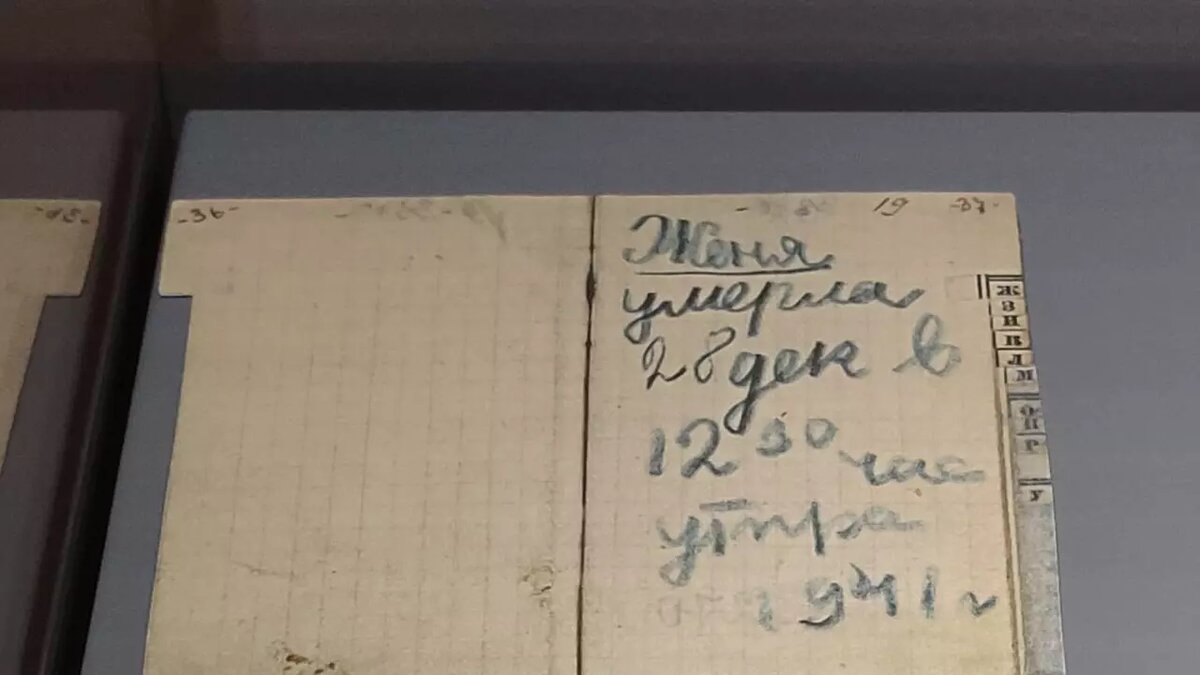 -36-
19 -37-
Женя
умерла
28 дек в
12 30 час
утра
1941 г
Ж
З
И
К
Л
М
О
П
Р
У